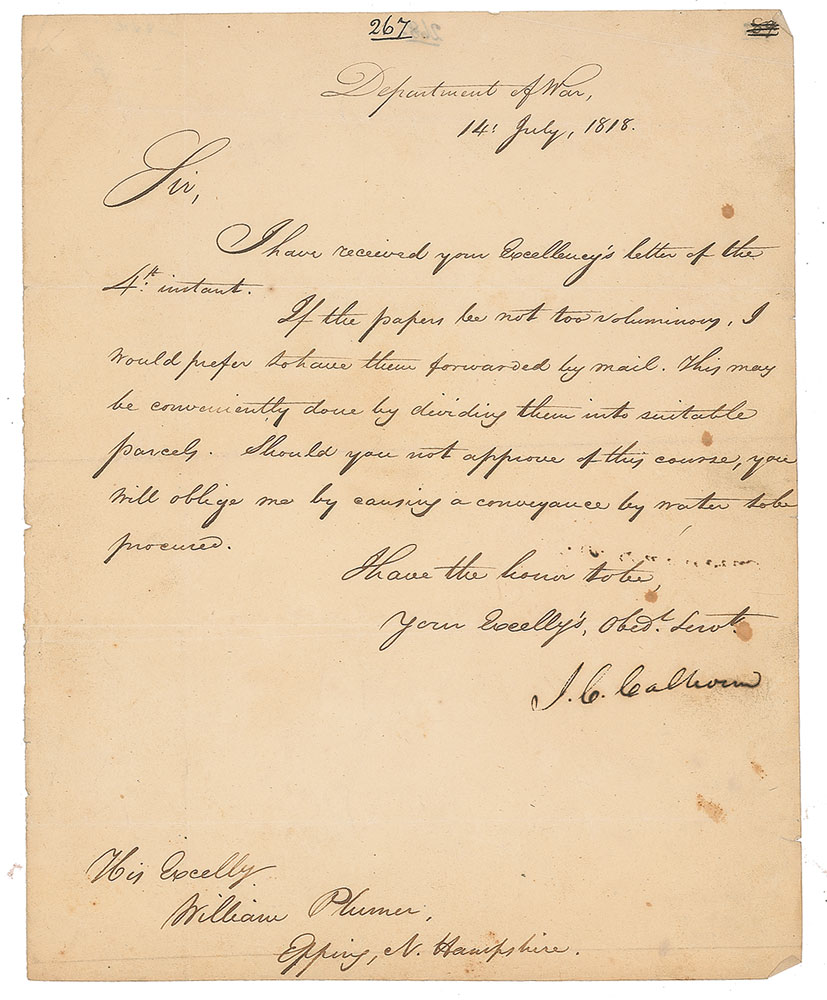 267
Department of War,
14: July, 1818.
Sir,
I have received your Excellency's letter of the
4:th instant.
If the papers be not too voluminous, I
would prefer to have them forwarded by mail. This may
be conveniently done by dividing them into suitable
parcels. Should you not approve of this course, you
will oblige me by causing a conveyance by water to be
procured.
I have the honor to be,
Your Excelly's, Obedt. Servt.
J. C. Calhoun
His Excelly
William Plumer,
Epping, N. Hampshire.